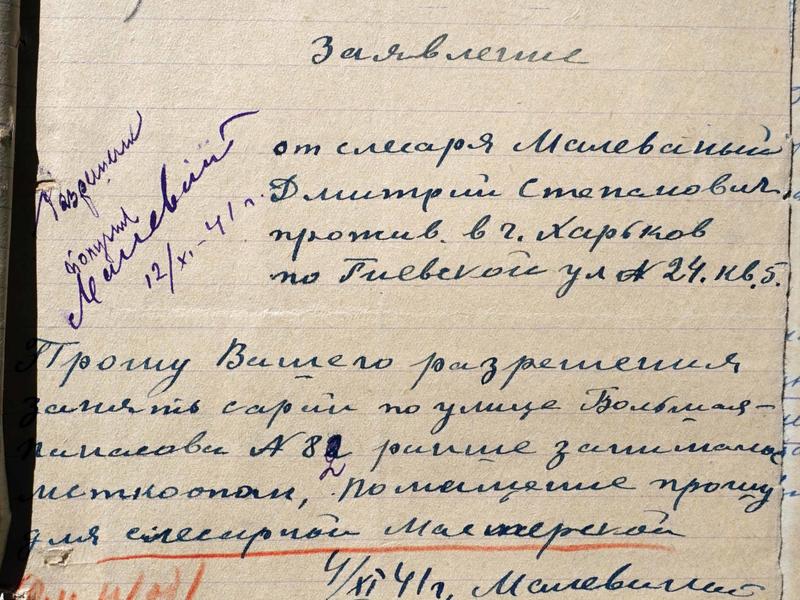 Заявление
от слесаря Малеваный
Дмитрий Степанович
прожив. в г. Харьков
по Гиевской ул № 24. кв. 5.
Разрешаю
12/XI-41 г.
Прошу Вашего разрешения
занять сарай по улице Больмая-
Панасова № 82 ранше занимала
помещение прошу
для слесарной Мастерской
4/XI 41 г. Малеваний